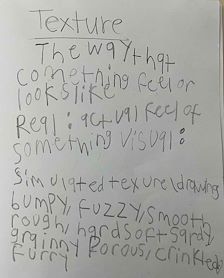 Texture
The way that
comething feel or
looks like
Real: actual feel of
something visual:
simulated texure/drawing
bumpy, fuzzy, smooth,
rough, hard soft sandy
grainny Porous, crinkled
Furry